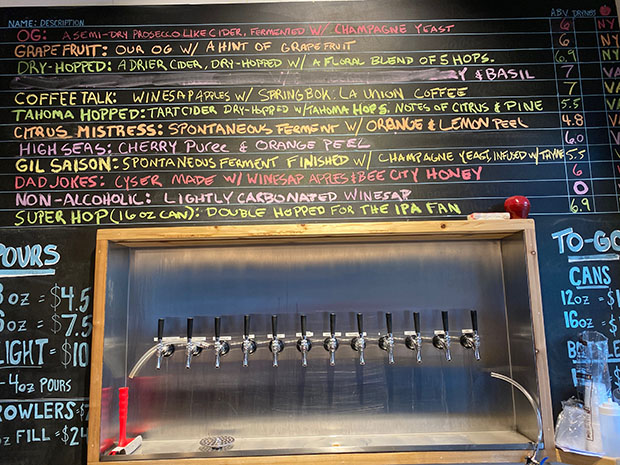 NAME: DESCRIPTION ABV ORINGS
OG: A SEMI-DRY PROSECCO LIKE CIDER, FERMENTED W/ CHAMPAGNE YEAST 6 NY
GRAPEFRUIT: OUR OG W/ A HINT OF GRAPEFRUIT 6 NY
DRY-HOPPED: A DRIER CIDER, DRY-HOPPED W/ A FLORAL BLEND OF 5 HOPS. 6.9
Y & BASIL 7 VA
COFFEE TALK: WINESAP APPLES W/ SPRINGBOK LA UNION COFFEE 7
TAHOMA HOPPED: TART CIDER DRY-HOPPED W/ TAHOMA HOPS. NOTES OF CITRUS & PINE 5.5
CITRUS MISTRESS: SPONTANEOUS FERMENT W/ ORANGE & LEMON PEEL 4.8
HIGH SEAS: CHERRY PUREE & ORANGE PEEL 6.0
GIL SAISON: SPONTANEOUS FERMENT FINISHED W/ CHAMPAGNE YEAST, INFUSED W/ THYME 5.5
DAD JOKES: CYSER MADE W/ WINESAP APPLES & BEE CITY HONEY 6
NON-ALCOHOLIC: LIGHTLY CARBONATED WINESAP 0
SUPER HOP (16 OZ CAN): DOUBLE HOPPED FOR THE IPA FAN 6.9
POURS
OZ = $4.5
OZ = $7.5
LIGHT = $10
-4OZ POURS
ROWLERS
OZ FILL = $2
TO-GO
CANS
12OZ = $
16OZ = $